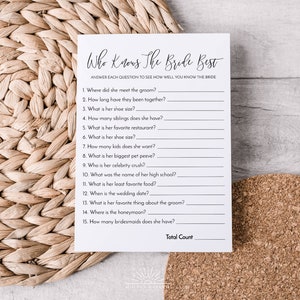 Who Knows The Bride Best
ANSWER EACH QUESTION TO SEE HOW WELL YOU KNOW THE BRIDE
1. Where did she meet the groom?
2. How long have they been together?
3. What is her shoe size?
4. How many siblings does she have?
5. What is her favorite restaurant?
6. What is her shoe size?
7. How many kids does she want?
8. What is her biggest pet peeve?
9. Who is her celebrity crush?
10. What was the name of her high school?
11. What is her least favorite food?
12. When is the wedding date?
13. What is her favorite thing about the groom?
14. Where is the honeymoon?
15. How many bridesmaids does she have?
Total Count